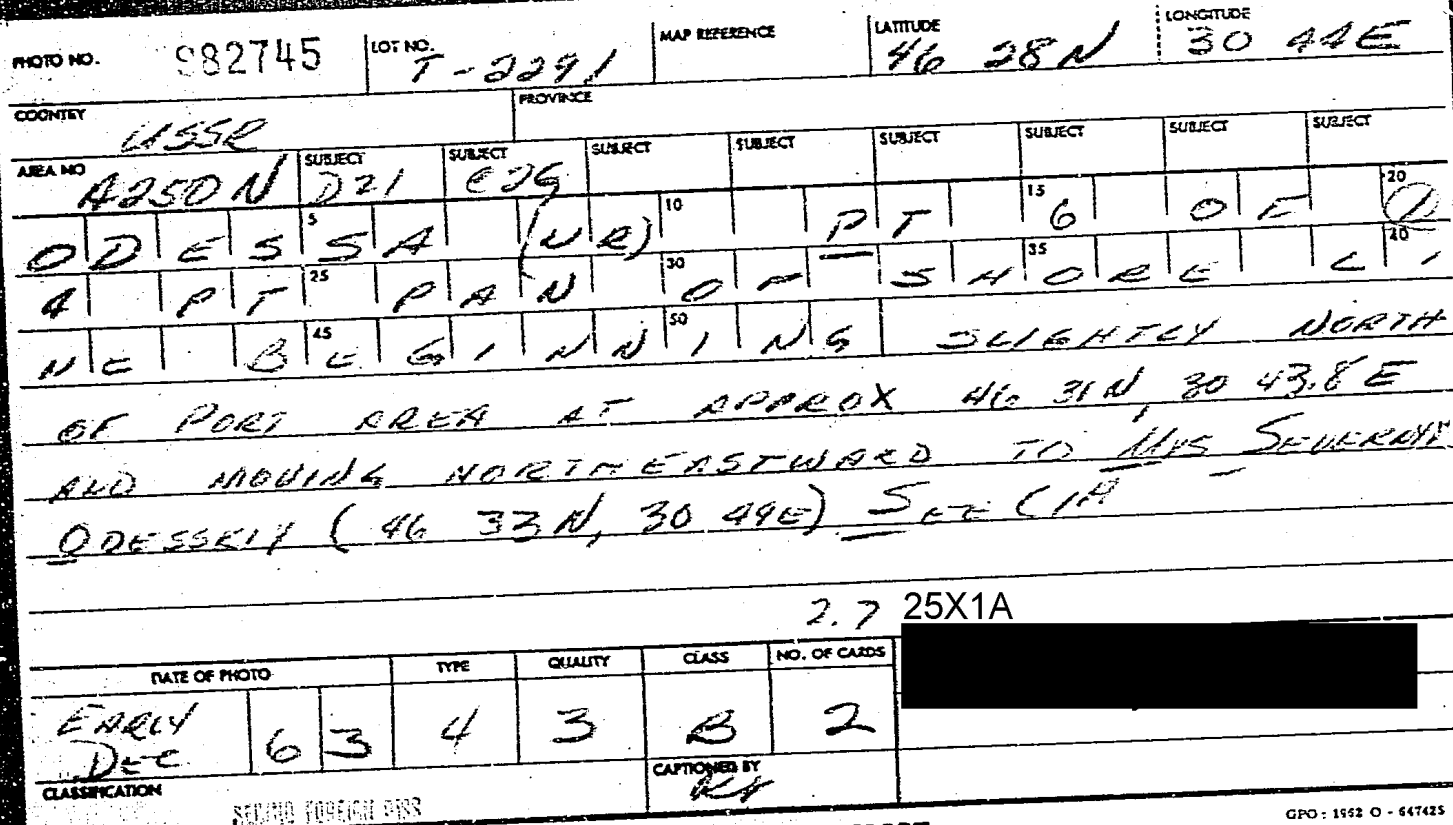 PHOTO NO. 982745 LOT NO. T-2291 MAP REFERENCE LATITUDE 46 28N LONGITUDE 30 44E
COUNTRY USSR PROVINCE
AREA NO A250N SUBJECT D21 SUBJECT E2G SUBJECT SUBJECT SUBJECT SUBJECT SUBJECT SUBJECT
ODESSA (UR) PT 6 OF 5 10 15 20
4 PT PAN OF SHORE LI 25 30 35 40
NE BEGINNING SLIGHTLY NORTH 45 50
OF PORT AREA AT APPROX 46 31N, 30 43.8E
AND MOVING NORTHEASTWARD TO MYS SEVERNYY
ODESSKIY (46 33N, 30 49E) SEE CIA
2.7 25X1A
DATE OF PHOTO TYPE QUALITY CLASS NO. OF CARDS
EARLY DEC 63 4 3 B 2
CLASSIFICATION CAPTIONED BY
FOREIGN DISS
GPO : 1962 O - 647425